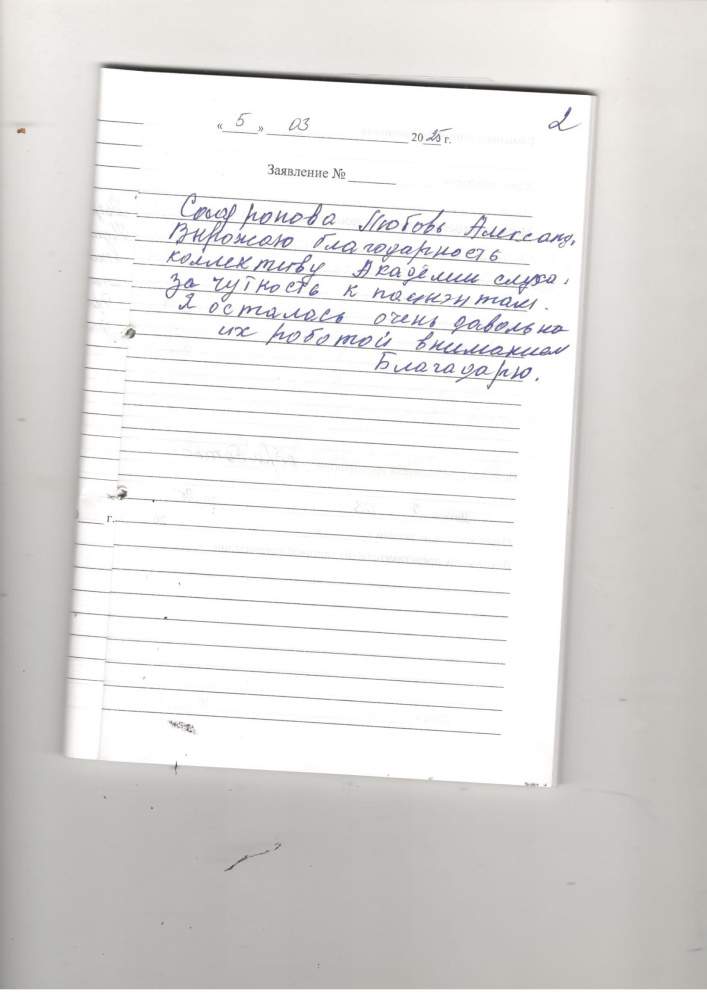 2
« 5 » 03 2025 г.
Заявление №
Любовь Александ.
Вырожаю благодарность
коллективу Академии слуха,
за чутность к пациэнтам.
Я осталась очень давольна
их роботой вниманием
Благадарю.
г.